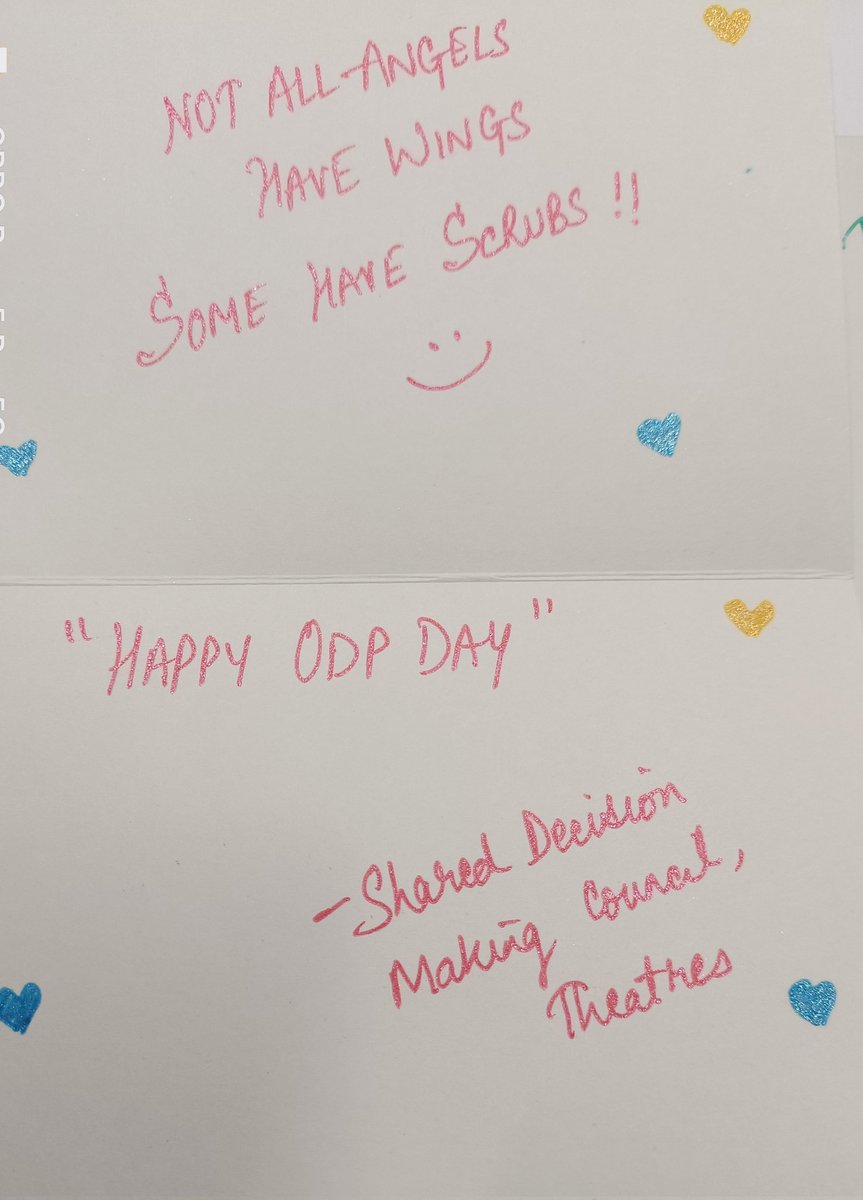 NOT ALL ANGELS
HAVE WINGS
SOME HAVE SCRUBS !!
"HAPPY ODP DAY"
- Shared Decision
Making Council,
Theatres